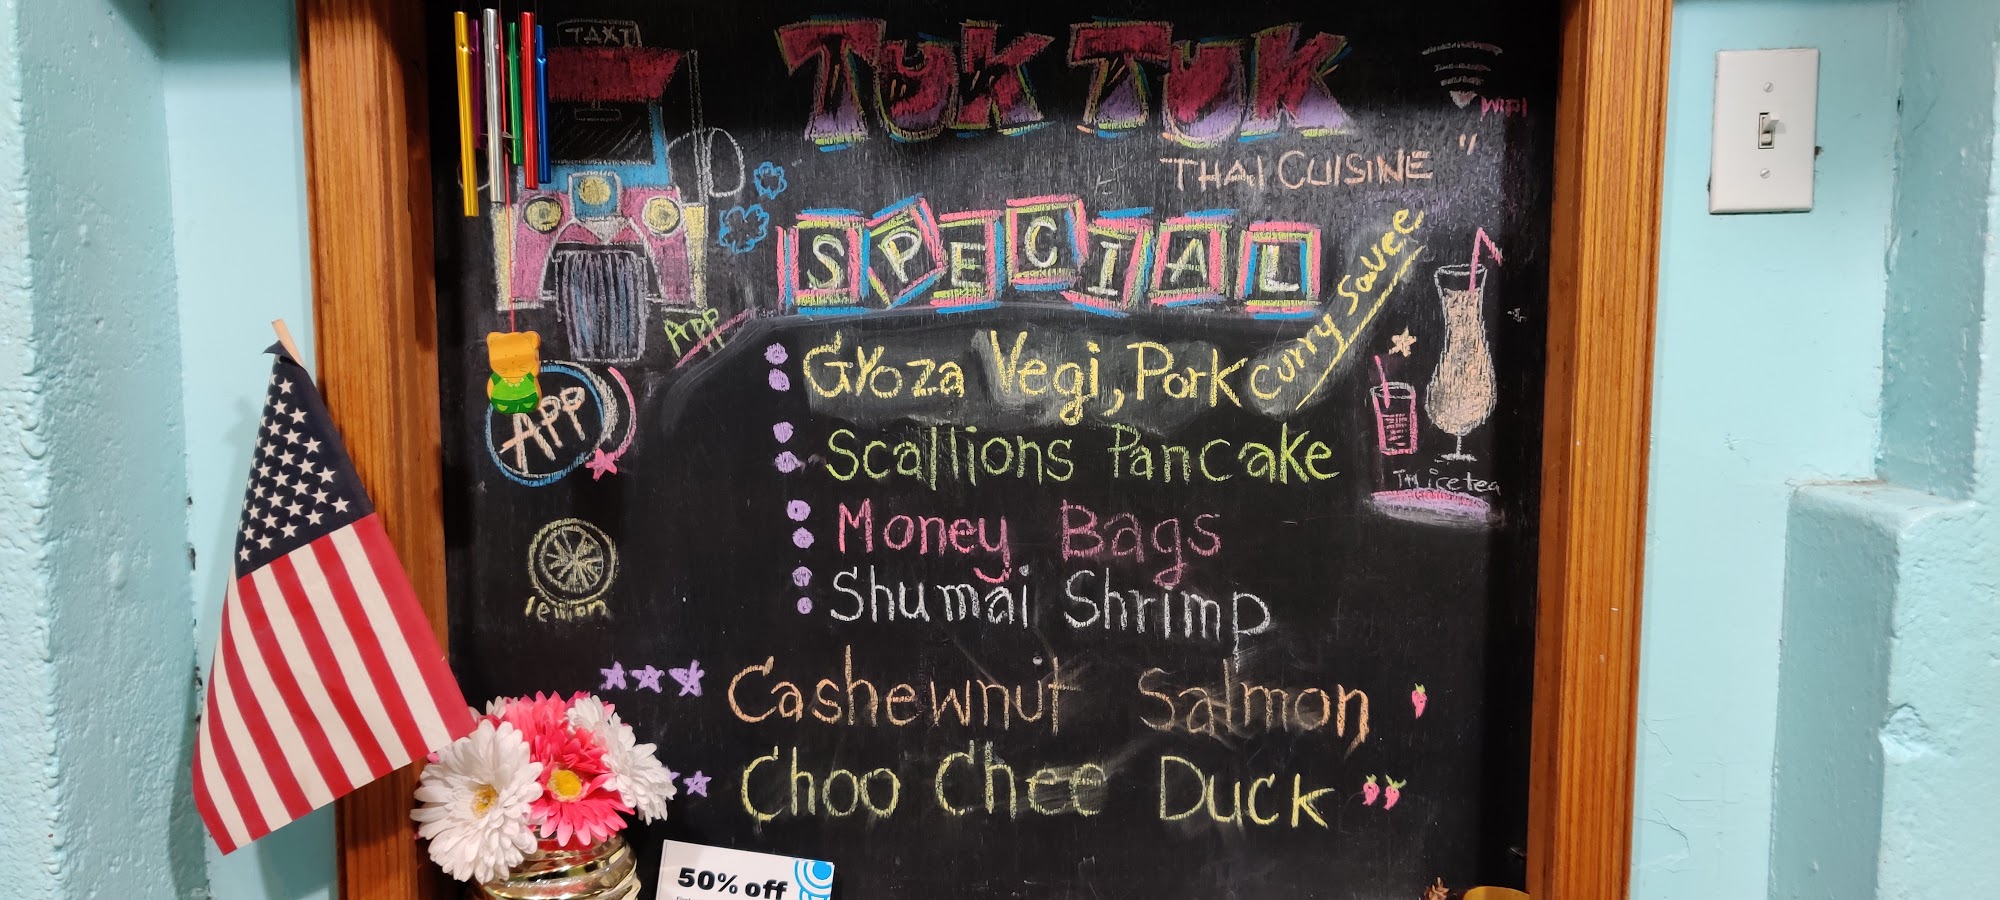 TAXI
TUK TUK
WIFI
THAI CUISINE
SPECIAL
APP
Gyoza Vegi, Pork curry Sauce
APP
Scallions Pancake
Money Bags
Shumai Shrimp
Cashewnut Salmon
Choo Chee Duck
50% off